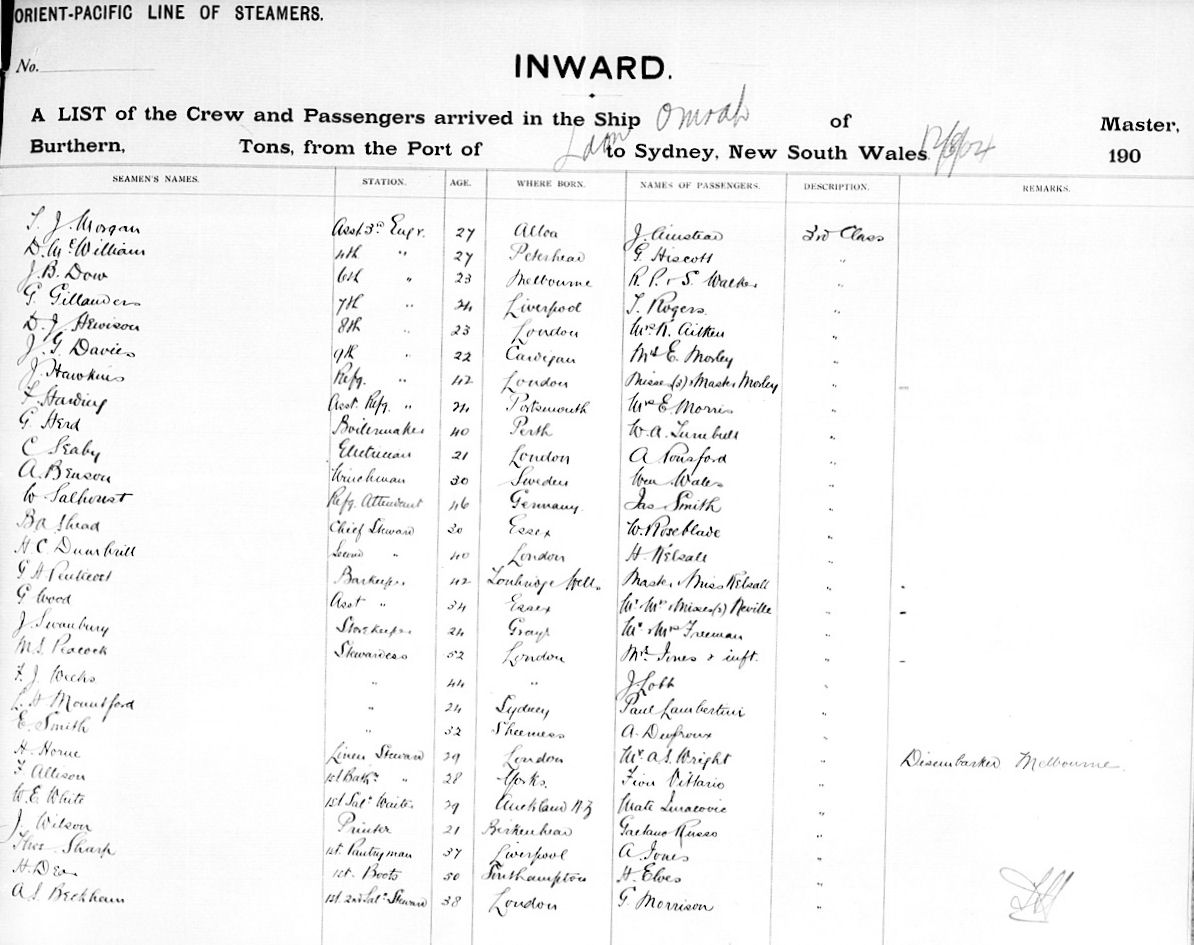 ORIENT-PACIFIC LINE OF STEAMERS.
No.
INWARD.
A LIST of the Crew and Passengers arrived in the Ship Omrah of Master,
Burthern, Tons, from the Port of to Sydney, New South Wales 190
SEAMEN'S NAMES. STATION. AGE. WHERE BORN. NAMES OF PASSENGERS. DESCRIPTION. REMARKS.
T. J. Morgan Asst 3rd Engr. 27 Alloa J. 3rd Class
D. McWilliam 4th " 27 Peterhead G. Hiscott "
J. B. Dow 6th " 23 Melbourne R. P. & S. Walker "
G. Gillanders 7th " 24 Liverpool T. Rogers "
D. J. Hewison 8th " 23 London Mrs R. Aitken "
J. G. Davies 9th " 22 Cardigan Mrs E. Morley "
J. Hawkins Refg. " 42 London Misses (3) & Master Morley "
F. Harding Asst. Refg. " 24 Portsmouth Mrs E Morris "
G. Herd Boilermaker 40 Perth W. A. Turnbull "
C Seaby Electrician 21 London A Ponsford "
A. Benson Winchman 30 Sweden Wm Wales "
W Salhurst Refg. Attendant 46 Germany Jas Smith "
Chief Steward 30 Essex W. Roseblade "
H C. Dumbrill Second " 40 London H. Kelsall "
G H Pentecost Barkeeper 42 Tonbridge Wells Master & Miss Kelsall "
G Wood Asst " 34 Essex Mr & Mrs & Misses (3) Neville "
J. Swanbury Storekeeper 24 Grays Mr & Mrs Freeman "
M. S. Peacock Stewardess 52 London Mrs Jones & inft. "
F. J. Wicks " 44 " J Lobb "
L. H Mountford " 24 Sydney Paul Lambertini "
E. Smith " 32 Sheerness A. Dufroux "
H. Horne Linen Steward 29 London Mr. A. S. Wright " Disembarked Melbourne.
F. Allison 1st Bath " 28 Yorks. Vittario "
W. E. White 1st Saln Waiter 29 Auckland NZ Mate "
J. Wilson Printer 21 Birkenhead Gaetano Russo "
Thos Sharp 1st. Pantryman 37 Liverpool A Jones "
H. Dea 1st. Boots 50 Southampton H. Elves "
A. S. Beckham 1st. 2nd Saln Steward 38 London G. Morrison "